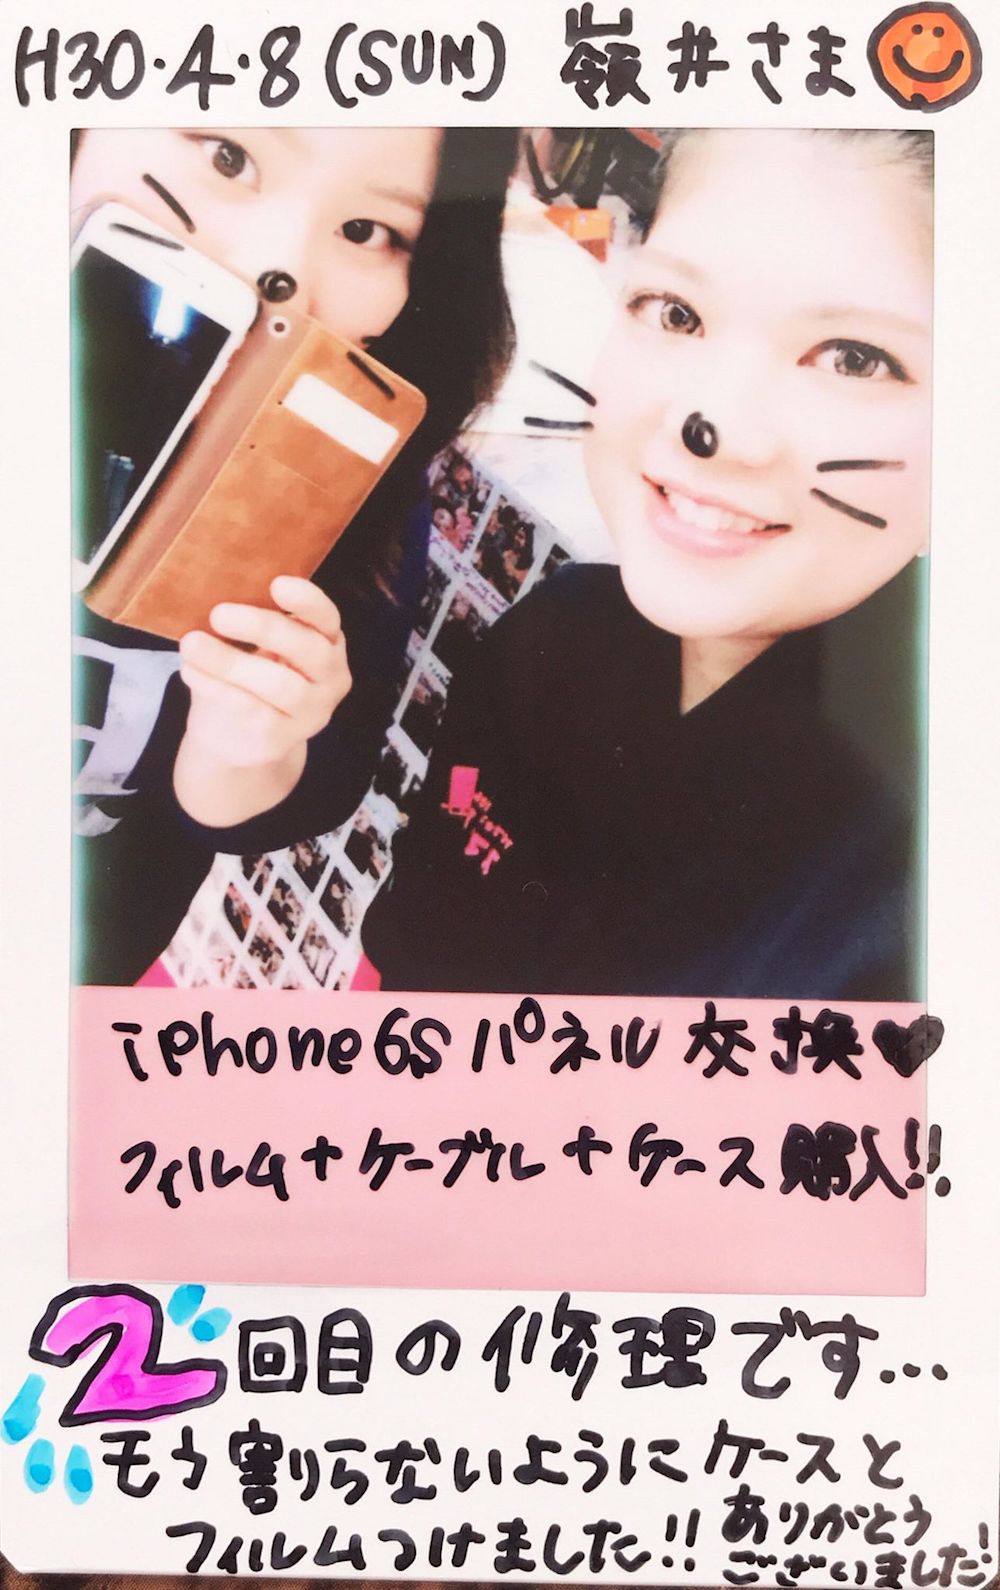 H30.4.8 (SUN) 嶺井さま
iPhone6s パネル交換♥
フィルム+ケーブル+ケース購入!!
2回目の修理です...
もう割らないようにケースと
フィルムつけました!!
ありがとう
ございました!